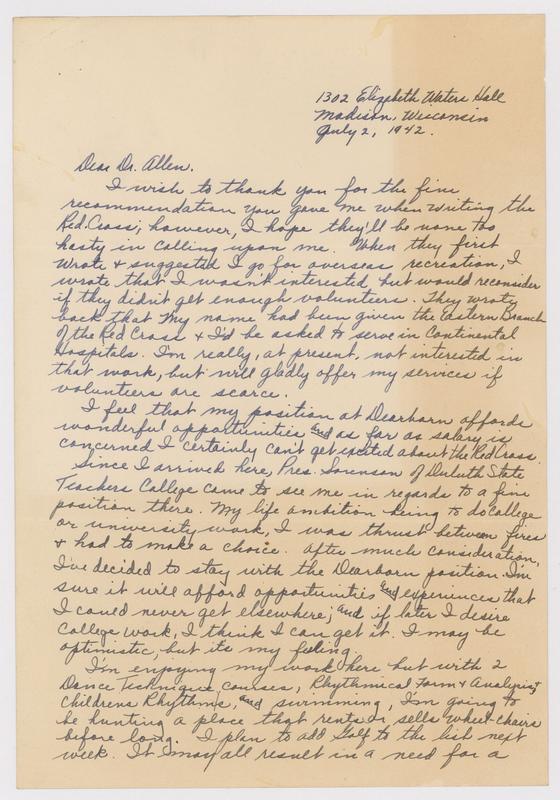 1302 Elizabeth Waters Hall
Madison, Wisconsin
July 2, 1942.
Dear Dr. Allen.
I wish to thank you for the fine
recommendation you gave me when writing the
Red Cross; however, I hope they'll be none too
hasty in calling upon me. When they first
wrote & suggested I go for overseas recreation, I
wrote that I wasn't interested but would reconsider
if they didn't get enough volunteers. They wrote
back that my name had been given the Eastern Branch
of the Red Cross & I'd be asked to serve in Continental
Hospitals. I'm really, at present, not interested in
that work, but will gladly offer my services if
volunteers are scarce.
I feel that my position at Dearborn affords
wonderful opportunities and as far as salary is
concerned I certainly can't get excited about the Red Cross.
Since I arrived here, Pres. Sorenson of Duluth State
Teachers College came to see me in regards to a fine
position there. My life ambition being to do College
or university work, I was thrust between fires
& had to make a choice. After much consideration,
I've decided to stay with the Dearborn position. I'm
sure it will afford opportunities and experiences that
I could never get elsewhere; and if later I desire
College work, I think I can get it. I may be
optimistic, but its my feeling.
I'm enjoying my work here but with 2
Dance Technique courses, Rhythmical Form & Analysis,
Childrens Rhythms, and swimming, I'm going to
be hunting a place that rents or sells wheel-chairs
before long. I plan to add Golf to the list next
week. It may all result in a need for a